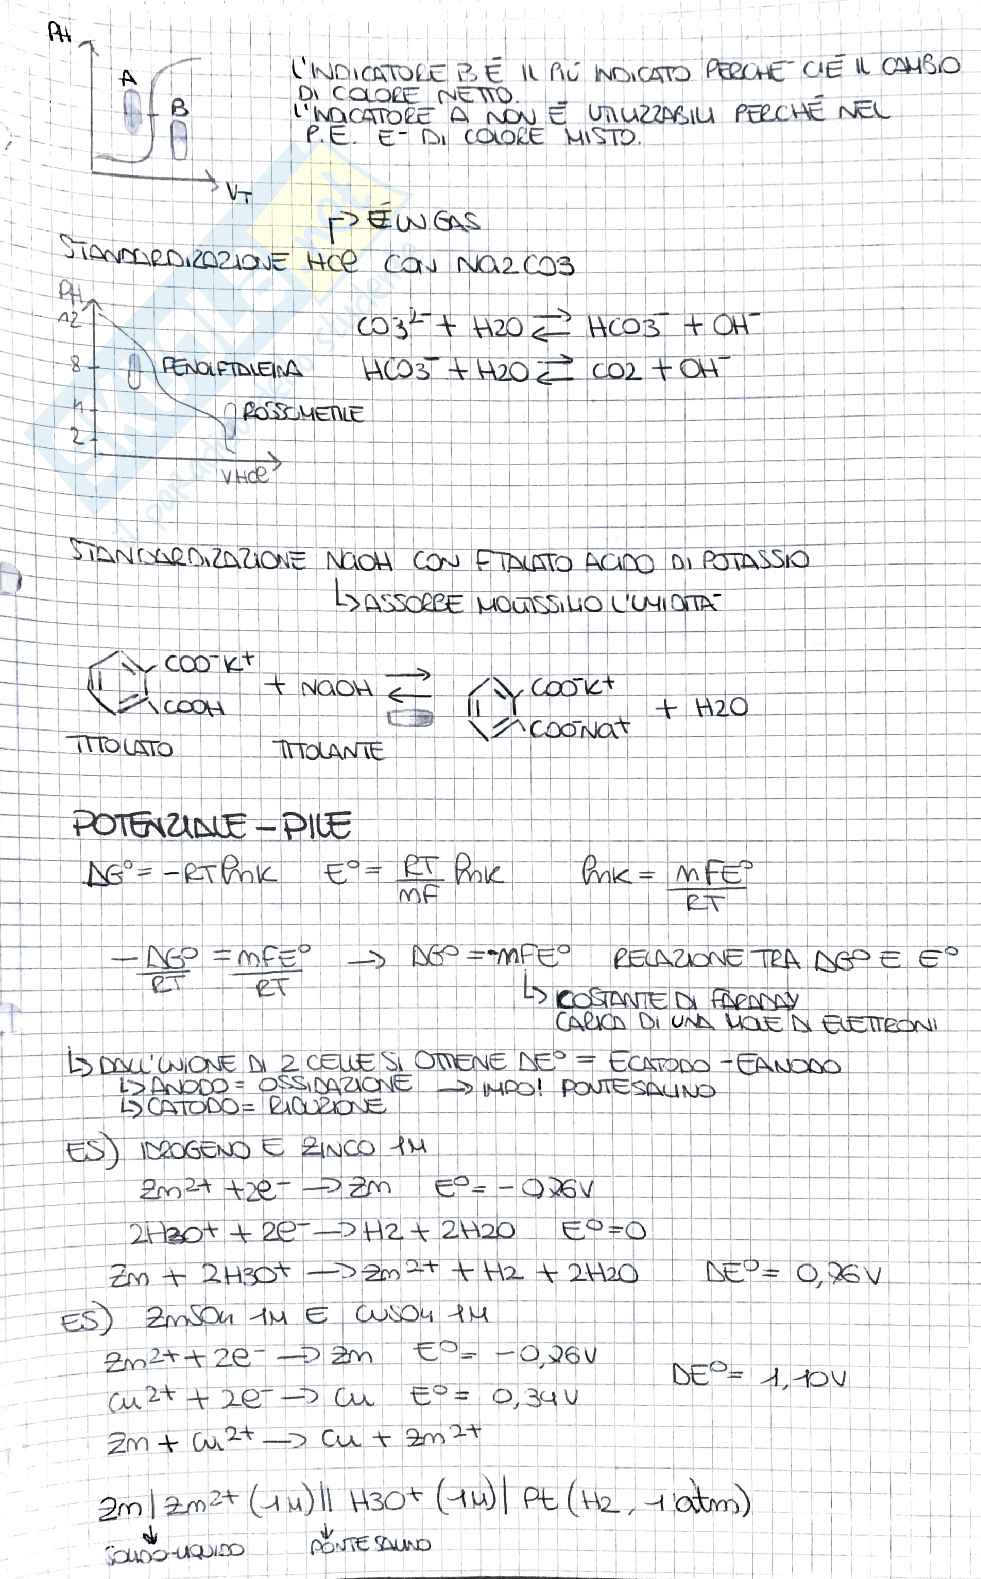 PH
A
B
VT
L'INDICATORE B È IL PIÙ INDICATO PERCHÈ C'È IL CAMBIO
DI COLORE NETTO.
L'INDICATORE A NON È UTILIZZABILI PERCHÉ NEL
P.E. E' DI COLORE MISTO.
↱> È UN GAS
STANDARDIZZAZIONE HCl CON Na2CO3
PH
12
8
4
2
FENOLFTALEINA
ROSSOMETILE
VHCl
CO3²⁻ + H2O ⇄ HCO3⁻ + OH⁻
HCO3⁻ + H2O ⇄ CO2 + OH⁻
STANDARDIZZAZIONE NaOH CON FTALATO ACIDO DI POTASSIO
↳ ASSORBE MOLTISSIMO L'UMIDITA'
COO⁻K⁺
COOH
+ NaOH ⇄
COO⁻K⁺
COO⁻Na⁺
+ H2O
TITOLATO
TITOLANTE
POTENZIALE - PILE
ΔG° = -RTlnK E° = RT/nF lnK lnK = nFE°/RT
-ΔG°/RT = nFE°/RT → ΔG° = -nFE° RELAZIONE TRA ΔG° E E°
↳ COSTANTE DI FARADAY
CARICA DI UNA MOLE DI ELETTRONI
↳ DALL'UNIONE DI 2 CELLE SI OTTIENE DE° = ECATODO - EANODO
↳ ANODO = OSSIDAZIONE → IMPO! PONTE SALINO
↳ CATODO = RIDUZIONE
ES) IDROGENO E ZINCO 1M
Zn2+ + 2e⁻ → Zn E° = -0,76V
2H3O⁺ + 2e⁻ → H2 + 2H2O E°=0
Zn + 2H3O⁺ → Zn2+ + H2 + 2H2O DE° = 0,76V
ES) ZnSO4 1M E CuSO4 1M
Zn2+ + 2e⁻ → Zn E° = -0,76V
DE° = 1,10V
Cu2+ + 2e⁻ → Cu E° = 0,34V
Zn + Cu2+ → Cu + Zn2+
Zn | Zn2+ (1M) || H3O+ (1M) | Pt (H2, 1 atm)
SOLIDO-LIQUIDO
PONTE SALINO